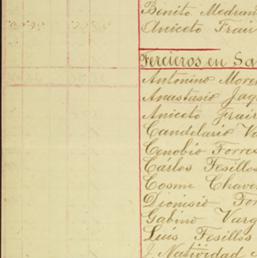 Benito Medran
Aniceto Frair
Tercieros en Sa
Antonino More
Anastasio Jaq
Aniceto Frair
Candelario Va
Cenobio Torres
Carlos Tesillos
Cosme Chaves
Dionisio Tor
Gabino Varg
Luis Tesillos
J. Natividad